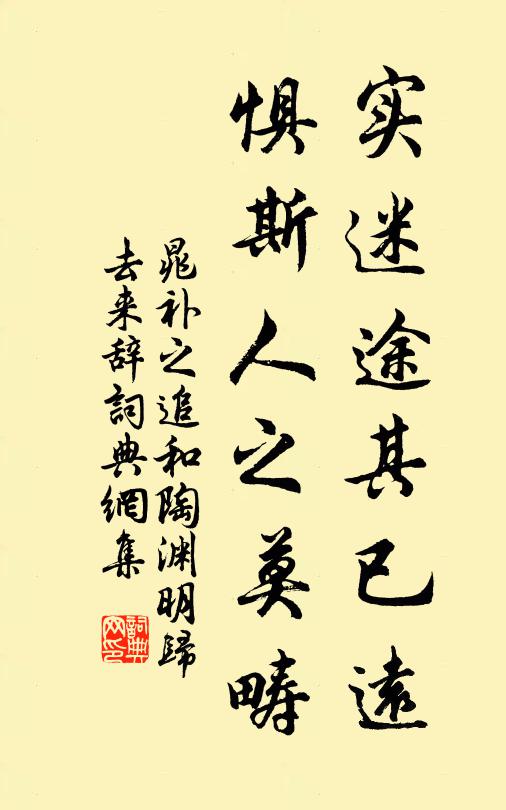 实迷途其已遠
惧斯人之莫畴
晁补之追和陶渊明歸
去来辞詞典網集
詞典网印